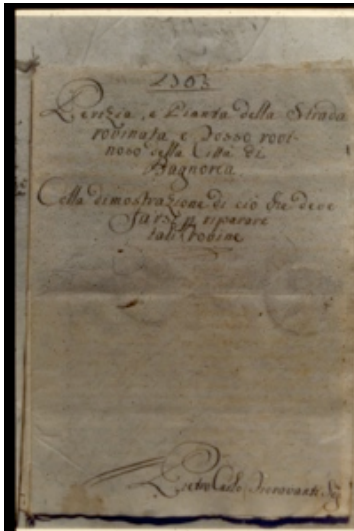 1703
Perizia, e Pianta della Strada
rovinata e Fosso rovi-
noso della Città di
Bagnorea
Colla dimostrazione di ciò che deve
farsi p riparare
tali rovine
Pietro Carlo